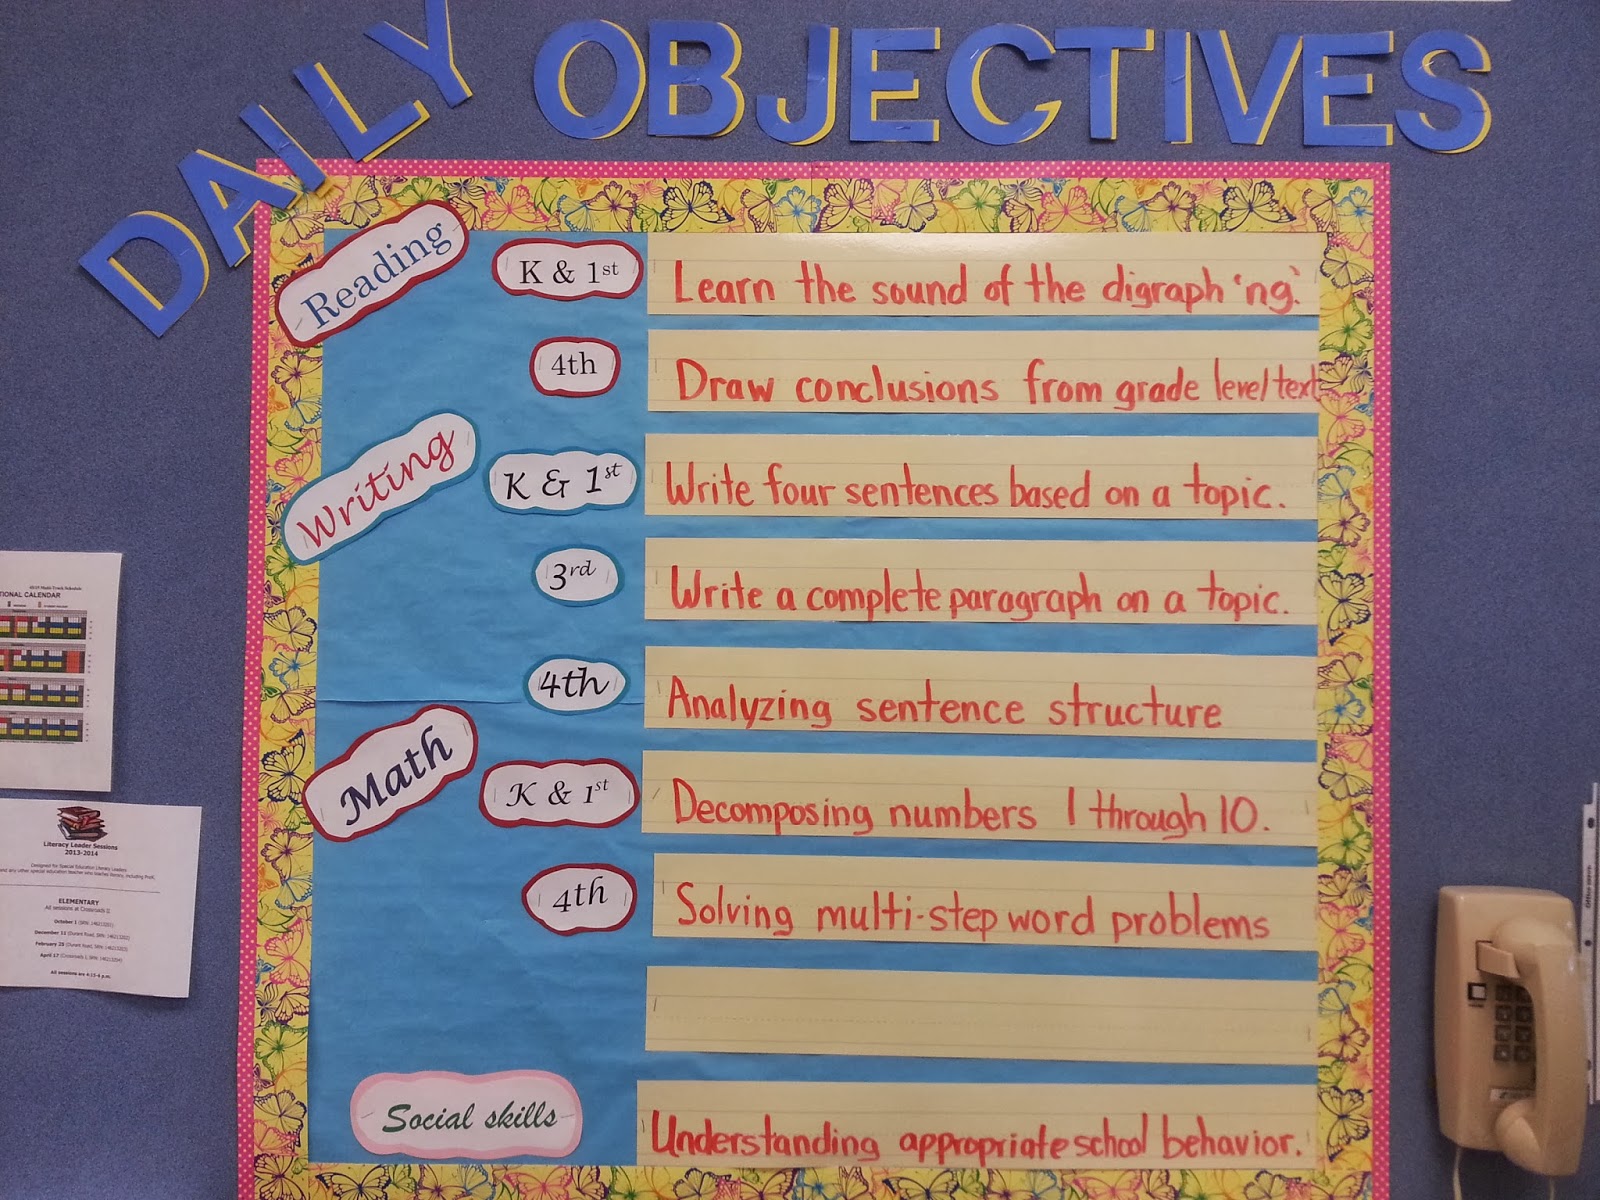 DAILY OBJECTIVES
Reading
K & 1st
Learn the sound of the digraph 'ng'.
4th
Draw conclusions from grade level text
Writing
K & 1st
Write four sentences based on a topic.
3rd
Write a complete paragraph on a topic.
4th
Analyzing sentence structure
Math
K & 1st
Decomposing numbers 1 through 10.
4th
Solving multi-step word problems
Social skills
Understanding appropriate school behavior.
TIONAL CALENDAR
Literacy Leader Sessions
2013-2014
Designed for Special Education Literacy Leaders
and any other special education teacher who teaches literacy, including PreK.
ELEMENTARY
All sessions at Crossroads II
October 1
December 11
February 25
April 17
All sessions are 4:15-6 p.m.